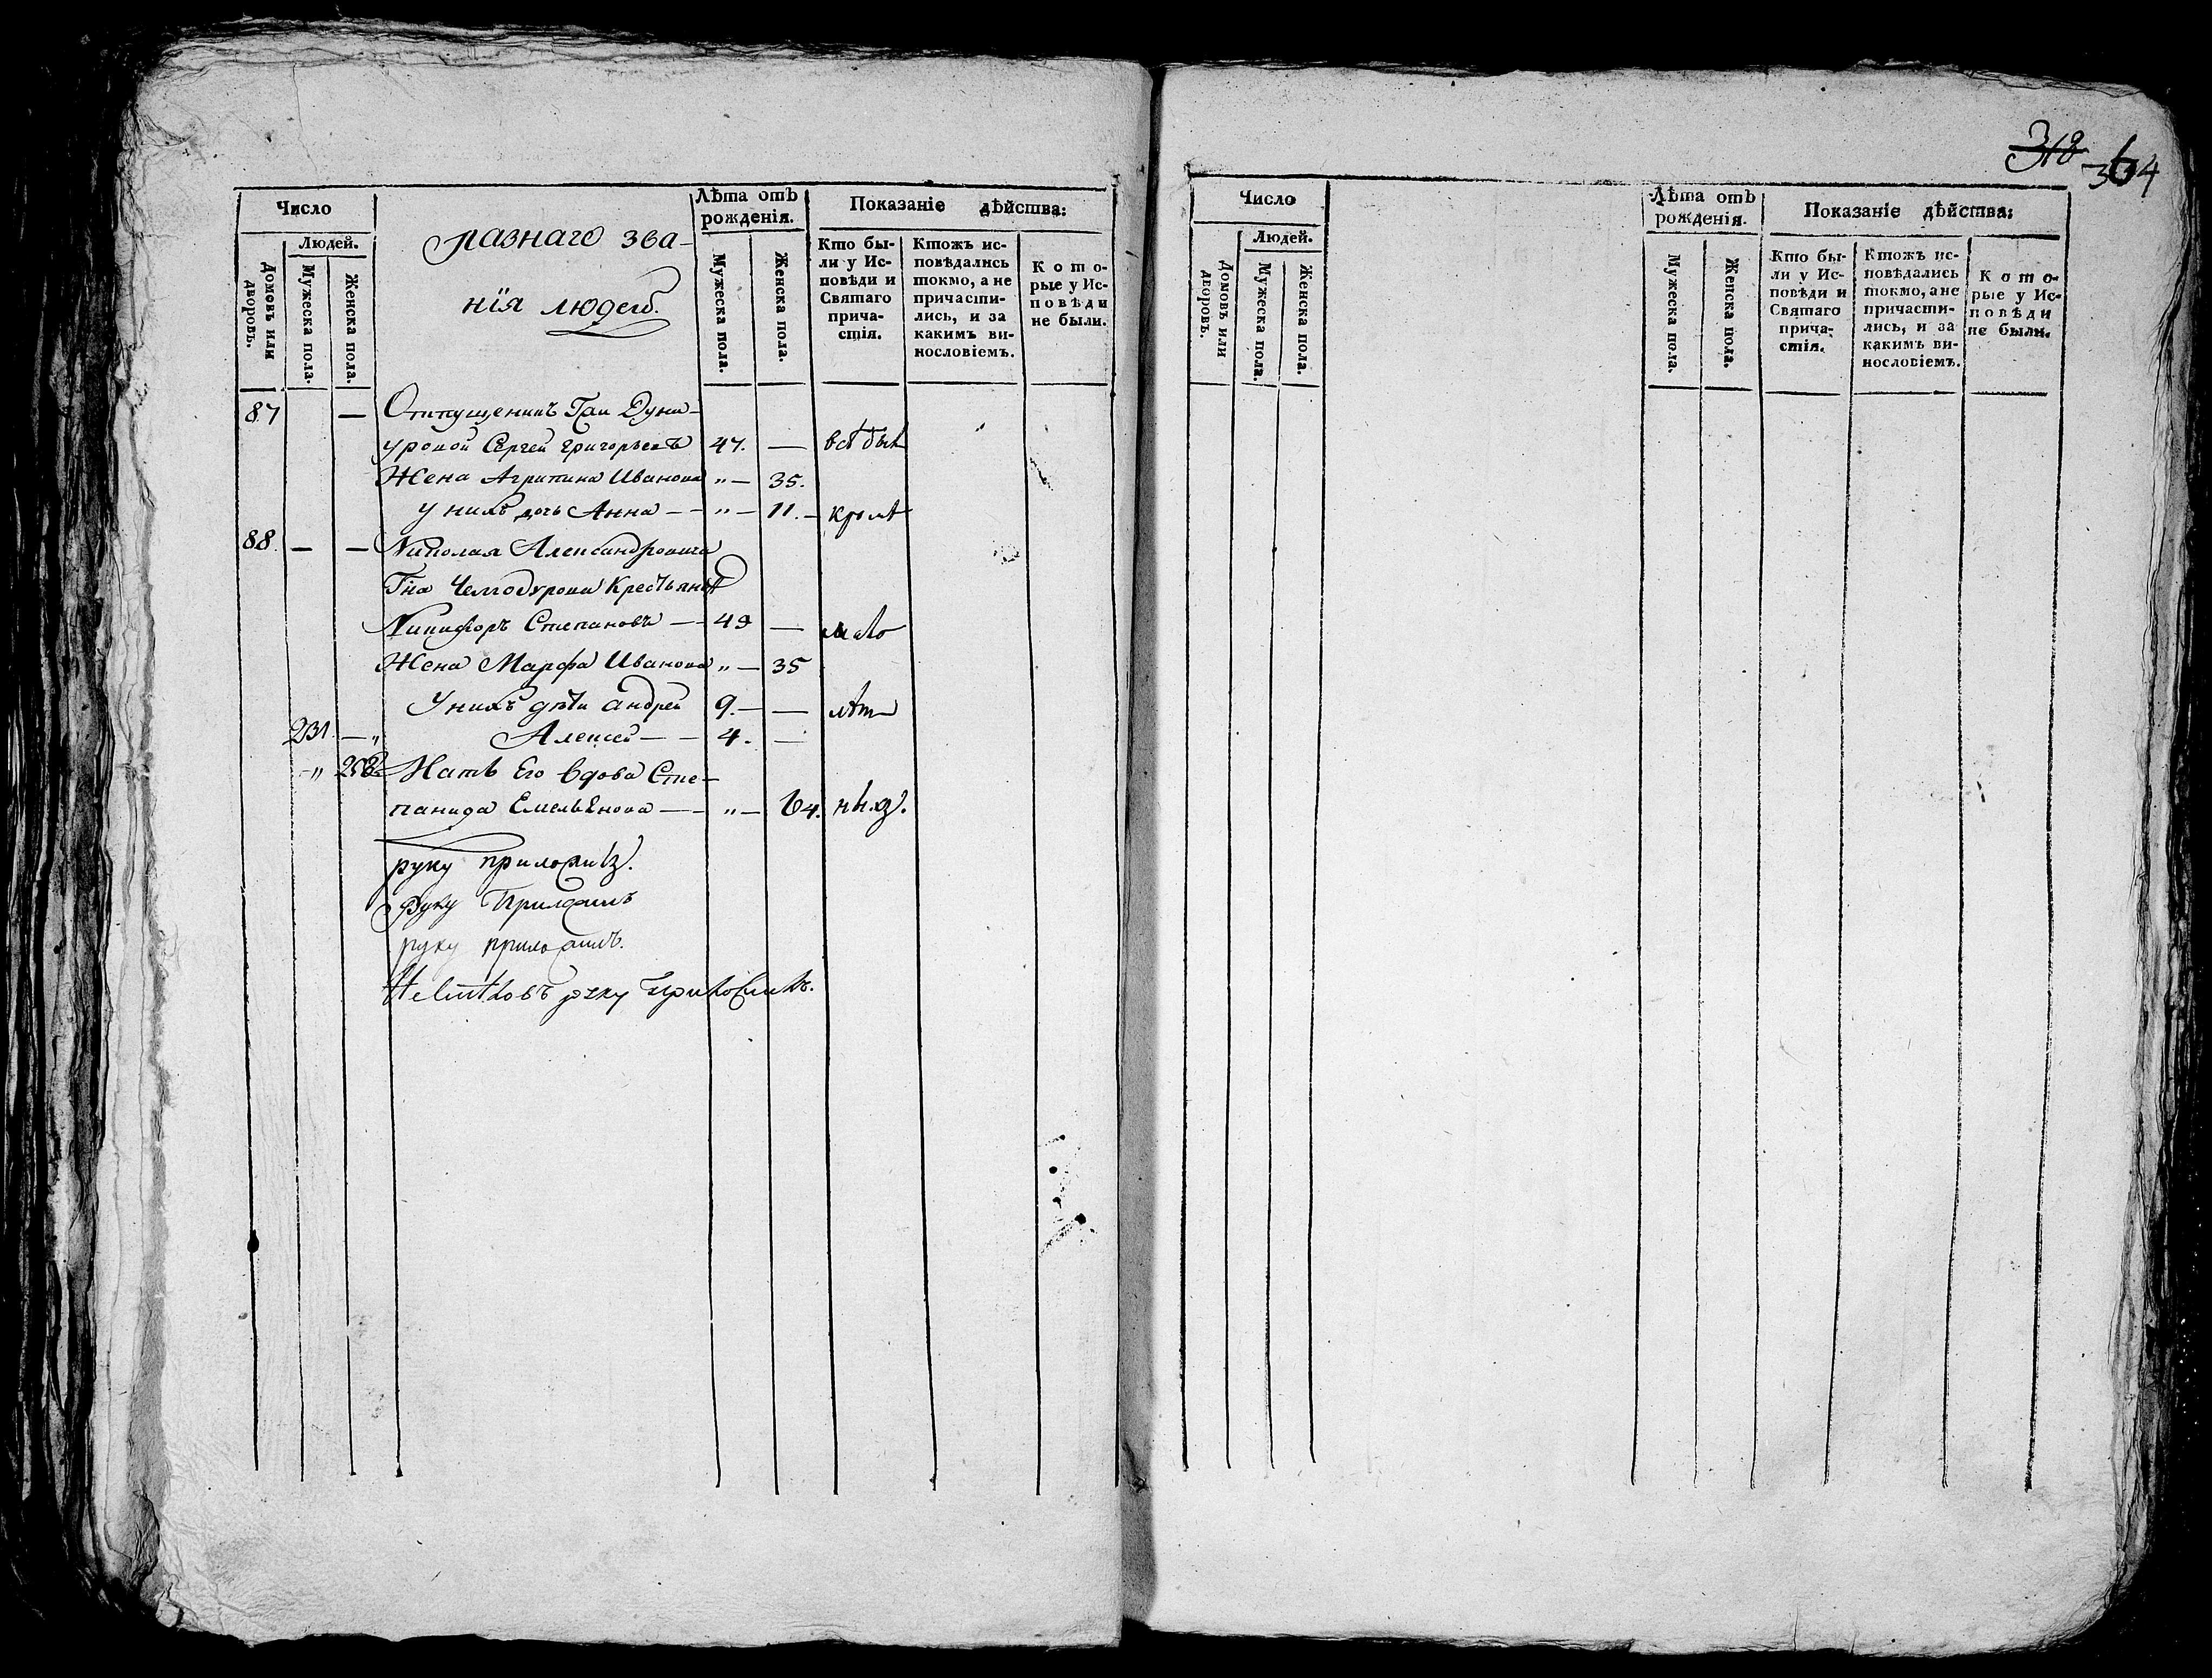 318 364
Число
Людей.
Домовъ или дворовъ.
Мужеска пола.
Женска пола.
Разнаго зва-
нїя людей.
Лѣта отъ
рожденія.
Мужеска пола.
Женска пола.
Показаніе дѣйства:
Кто бы-
ли у Ис-
повѣди и
Святаго
прича-
стія.
Ктожъ ис-
повѣдались
токмо, а не
причасти-
лись, и за
какимъ ви-
нословіемъ.
К о т о-
рые у Ис-
п о в ѣ д и
не были.
87 — Отпущеникъ Гжи
Сергей Григорьевъ 47. — всѣ
Жена Агрипина Иванова „ — 35.
у нихъ дочь Анна — — „ — 11. — кромѣ
88. — — Николая Александровича
Гна Чемодурова Крестьянѣ
Никифоръ Степановъ — 49 —
Жена Марфа Иванова „ — 35
У нихъ дѣти Андрей 9. — — лѣт
231. — „ Алексей — — 4. —
„ 258 Мать Его вдова Сте-
панида Емельянова — — „ — 64.
руку приложилъ.
руку Приложилъ
руку приложилъ.
руку приложилъ.
Число
Людей.
Домовъ или дворовъ.
Мужеска пола.
Женска пола.
Лѣта отъ
рожденія.
Мужеска пола.
Женска пола.
Показаніе дѣйства:
Кто бы-
ли у Ис-
повѣди и
Святаго
прича-
стія.
Ктожъ ис-
повѣдались
токмо, а не
причасти-
лись, и за
какимъ ви-
нословіемъ.
К о т о-
рые у Ис-
п о в ѣ д и
не были.